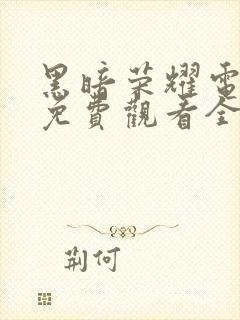 黑暗荣耀電
免費觀看全
荆何